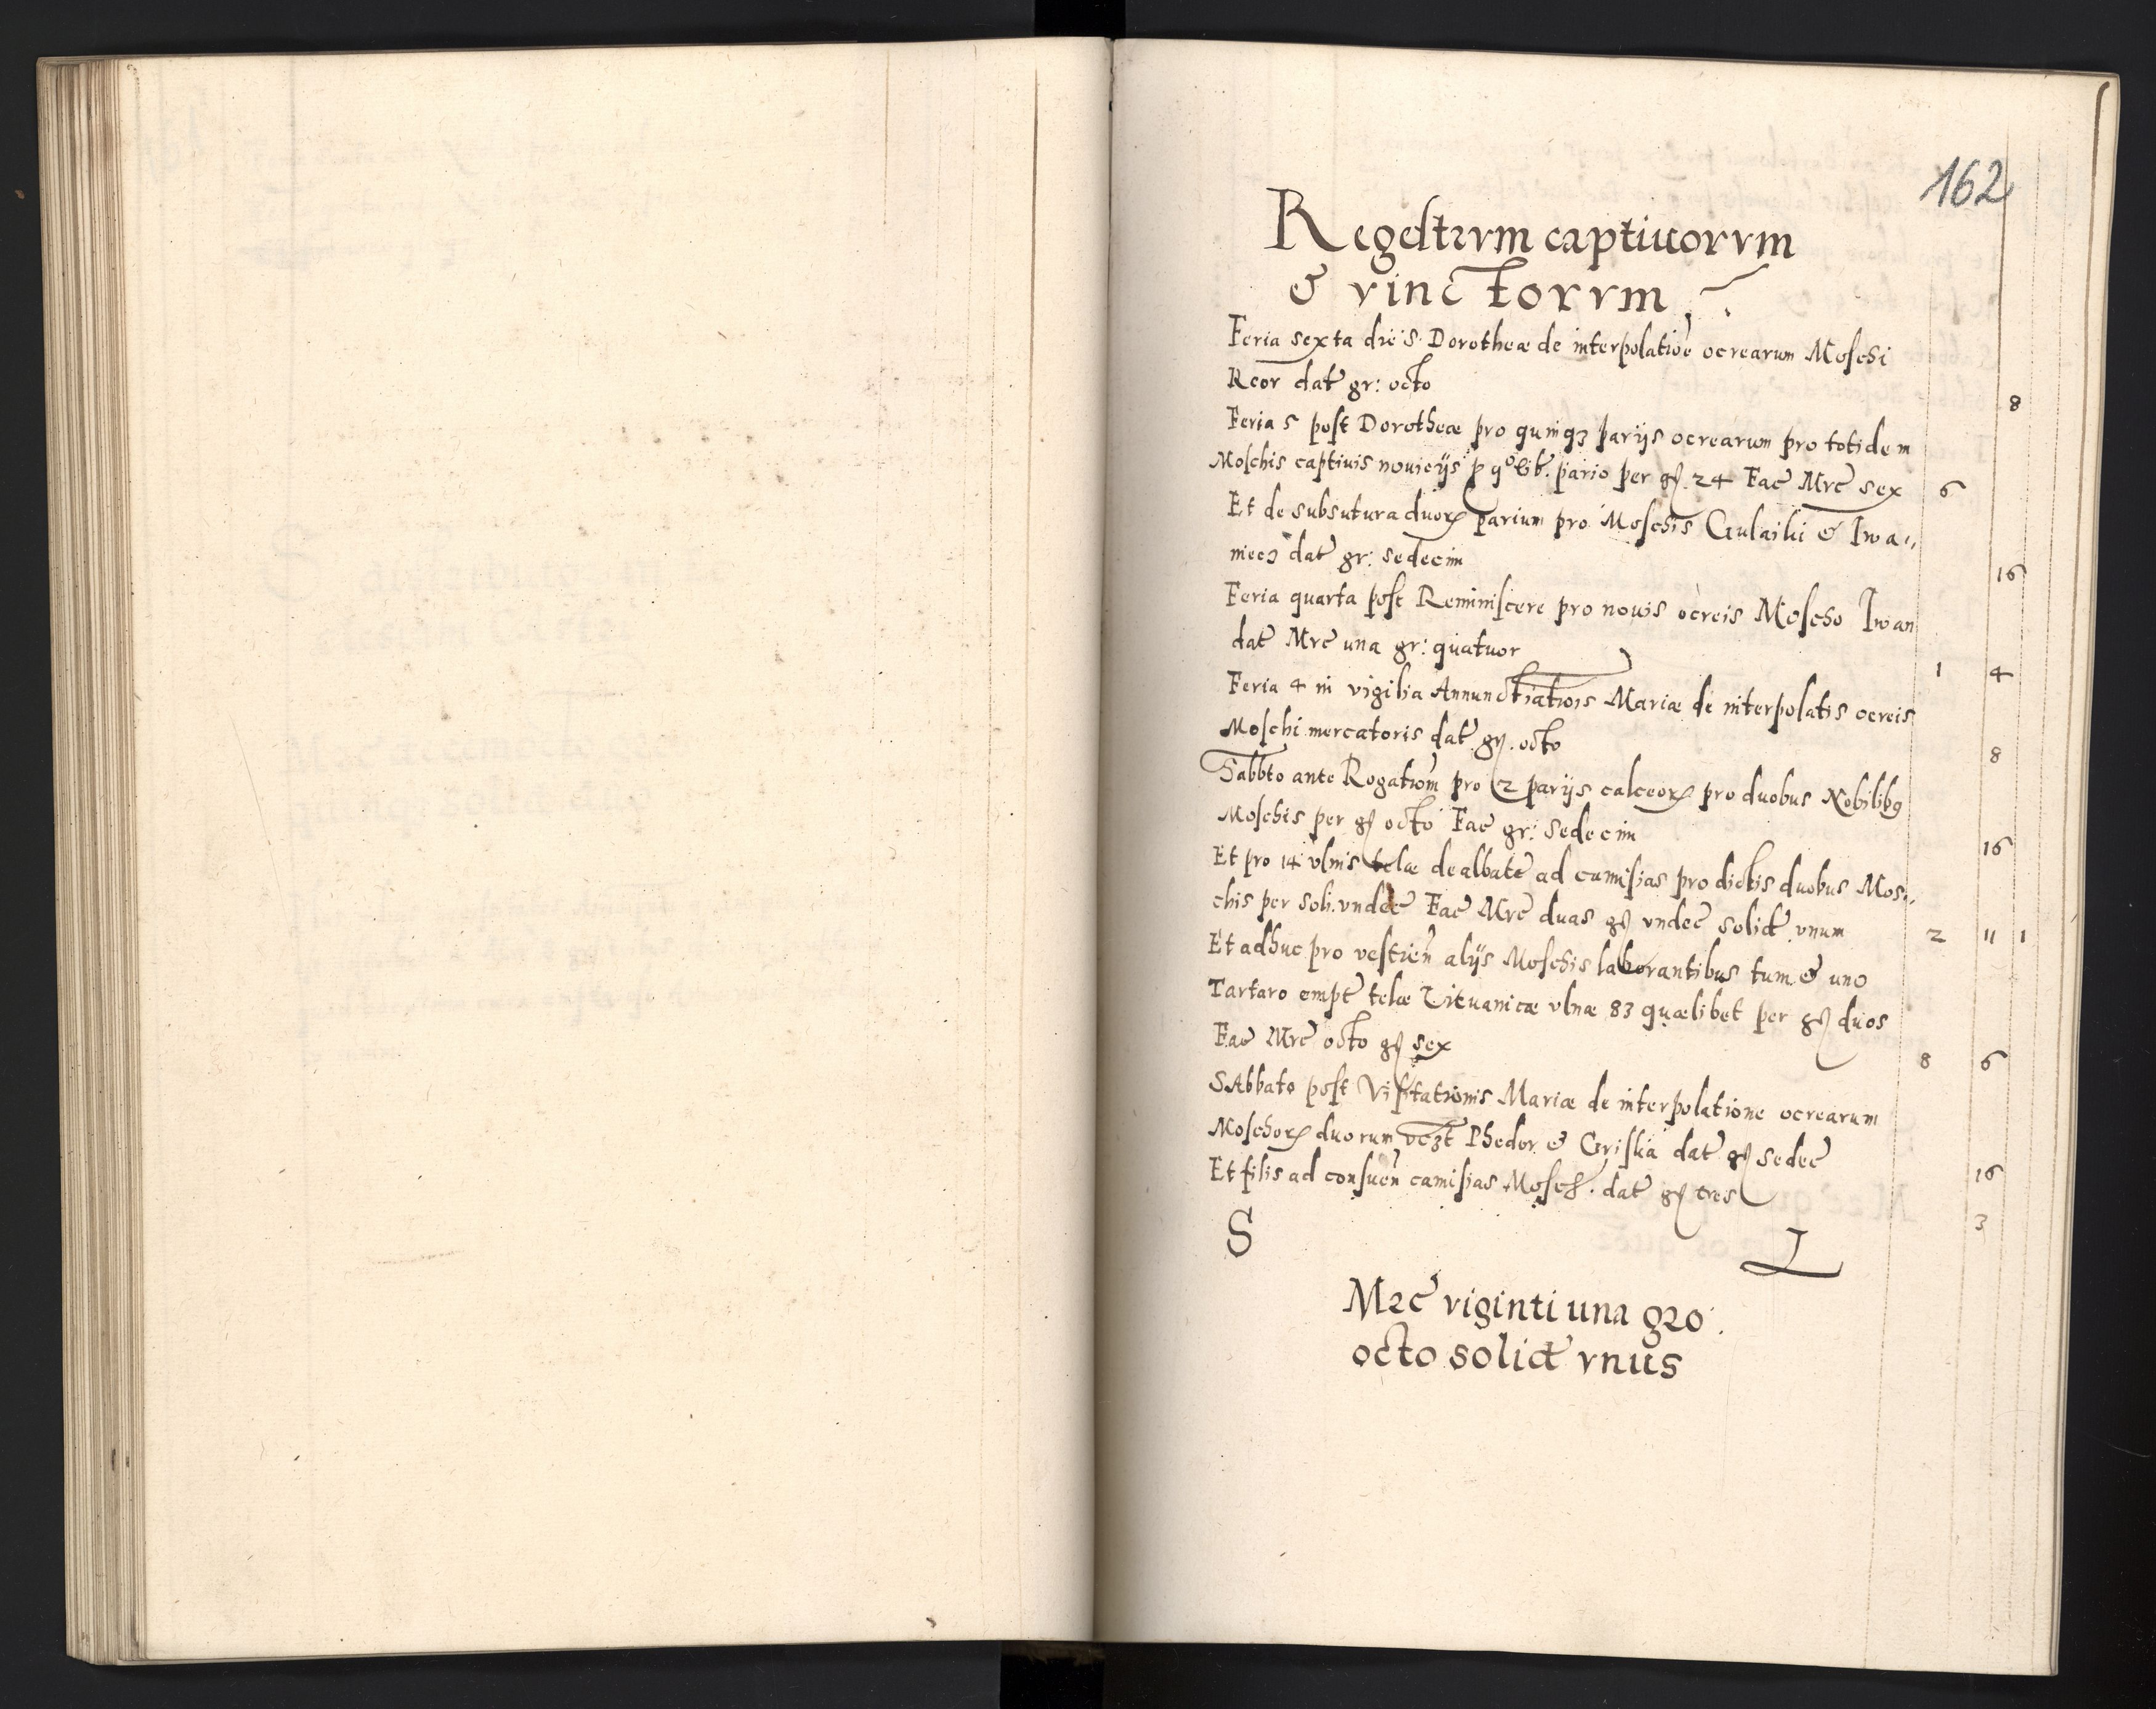 162
Regestrvm captiuorvm
& vinctorvm
Feria sexta dieis Dorotheæ de interpolatiõe ocrearum Moschi
Rcor dat gr: octo 8
Feria 5 post Dorotheæ pro quinqз parijs ocrearum pro totidem
Moschis captiuis nouicijs p qolib. pario per gr. 24 Fac Mrc sex 6
Et de subsutura duorꝝ parium pro Moschis Gulaiki & Iwa„
niecz dat gr: sedecim 16
Feria quarta post Reminiscere pro nouis ocreis Moscho Iwan
dat Mrc una gr: quatuor 1 4
Feria 4 in vigilia Annunctiatiois Mariæ de interpolatis ocreis
Moschi mercatoris dat gr. octo 8
Sabbto ante Rogatiom pro 2 parijs calceorꝝ pro duobus Nobilibꝯ
Moschis per gr octo Fac gr: sedecim 16
Et pro 14 vlnis telæ dealbate ad camisias pro dictis duobus Mos„
chis per soli. vndec Fac Mrc duas gr vndec solid vnum 2 11 1
Et adhuc pro vestien alijs Moschis laborantibus tum & uno
Tartaro empt telæ Lituanicæ vlnæ 83 quælibet per gr duos
Fac Mrc octo gr sex 8 6
SAbbato post Visitationis Mariæ de interpolatione ocrearum
Moschorꝝ duorum vczt Phedor & Griska dat gr sedec 16
Et filis ad consuen camisias Mosch. dat gr tres 3
S L
Mrc viginti una gro.
octo solid vnus